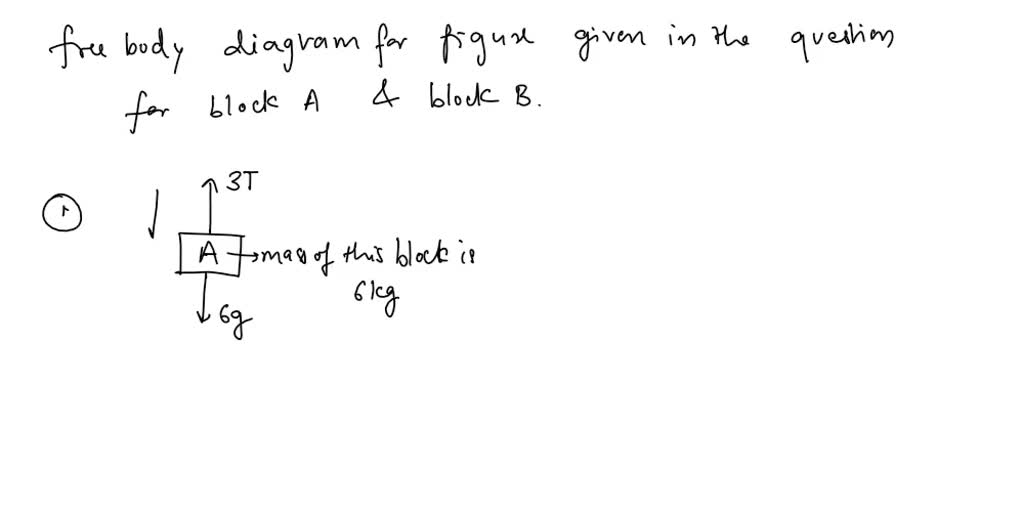 free body diagram for figure given in the question
for block A & block B.
3T
1
A → mass of this block is
6kg
6g